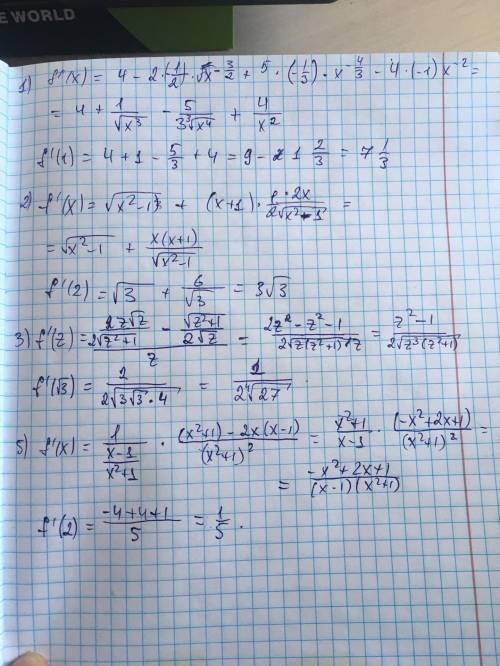 NEW
1) f'(x) = 4 - 2·(-1/2)·x^(-3/2) + 5·(-1/3)·x^(-4/3) - 4·(-1)x^(-2) =
= 4 + 1/√x³ - 5/(3∛x⁴) + 4/x²
f'(1) = 4 + 1 - 5/3 + 4 = 9 - 1 2/3 = 7 1/3
2) f'(x) = √(x²-1) + (x+1)·(1·2x)/(2√(x²-1)) =
= √(x²-1) + x(x+1)/√(x²-1)
f'(2) = √3 + 6/√3 = 3√3
3) f'(z) = (2z√z/(2√(z²+1)) - √(z²+1)/(2√z))/z = (2z²-z²-1)/(2√(z(z²+1))·z) = (z²-1)/(2√(z³(z²+1)))
f'(√3) = 2/(2√(3√3·4)) = 1/(2⁴√27).
5) f'(x) = 1/((x-1)/(x²+1)) · ((x²+1)-2x(x-1))/(x²+1)² = (x²+1)/(x-1) · (-x²+2x+1)/(x²+1)² =
= (-x²+2x+1)/((x-1)(x²+1))
f'(2) = (-4+4+1)/5 = 1/5.